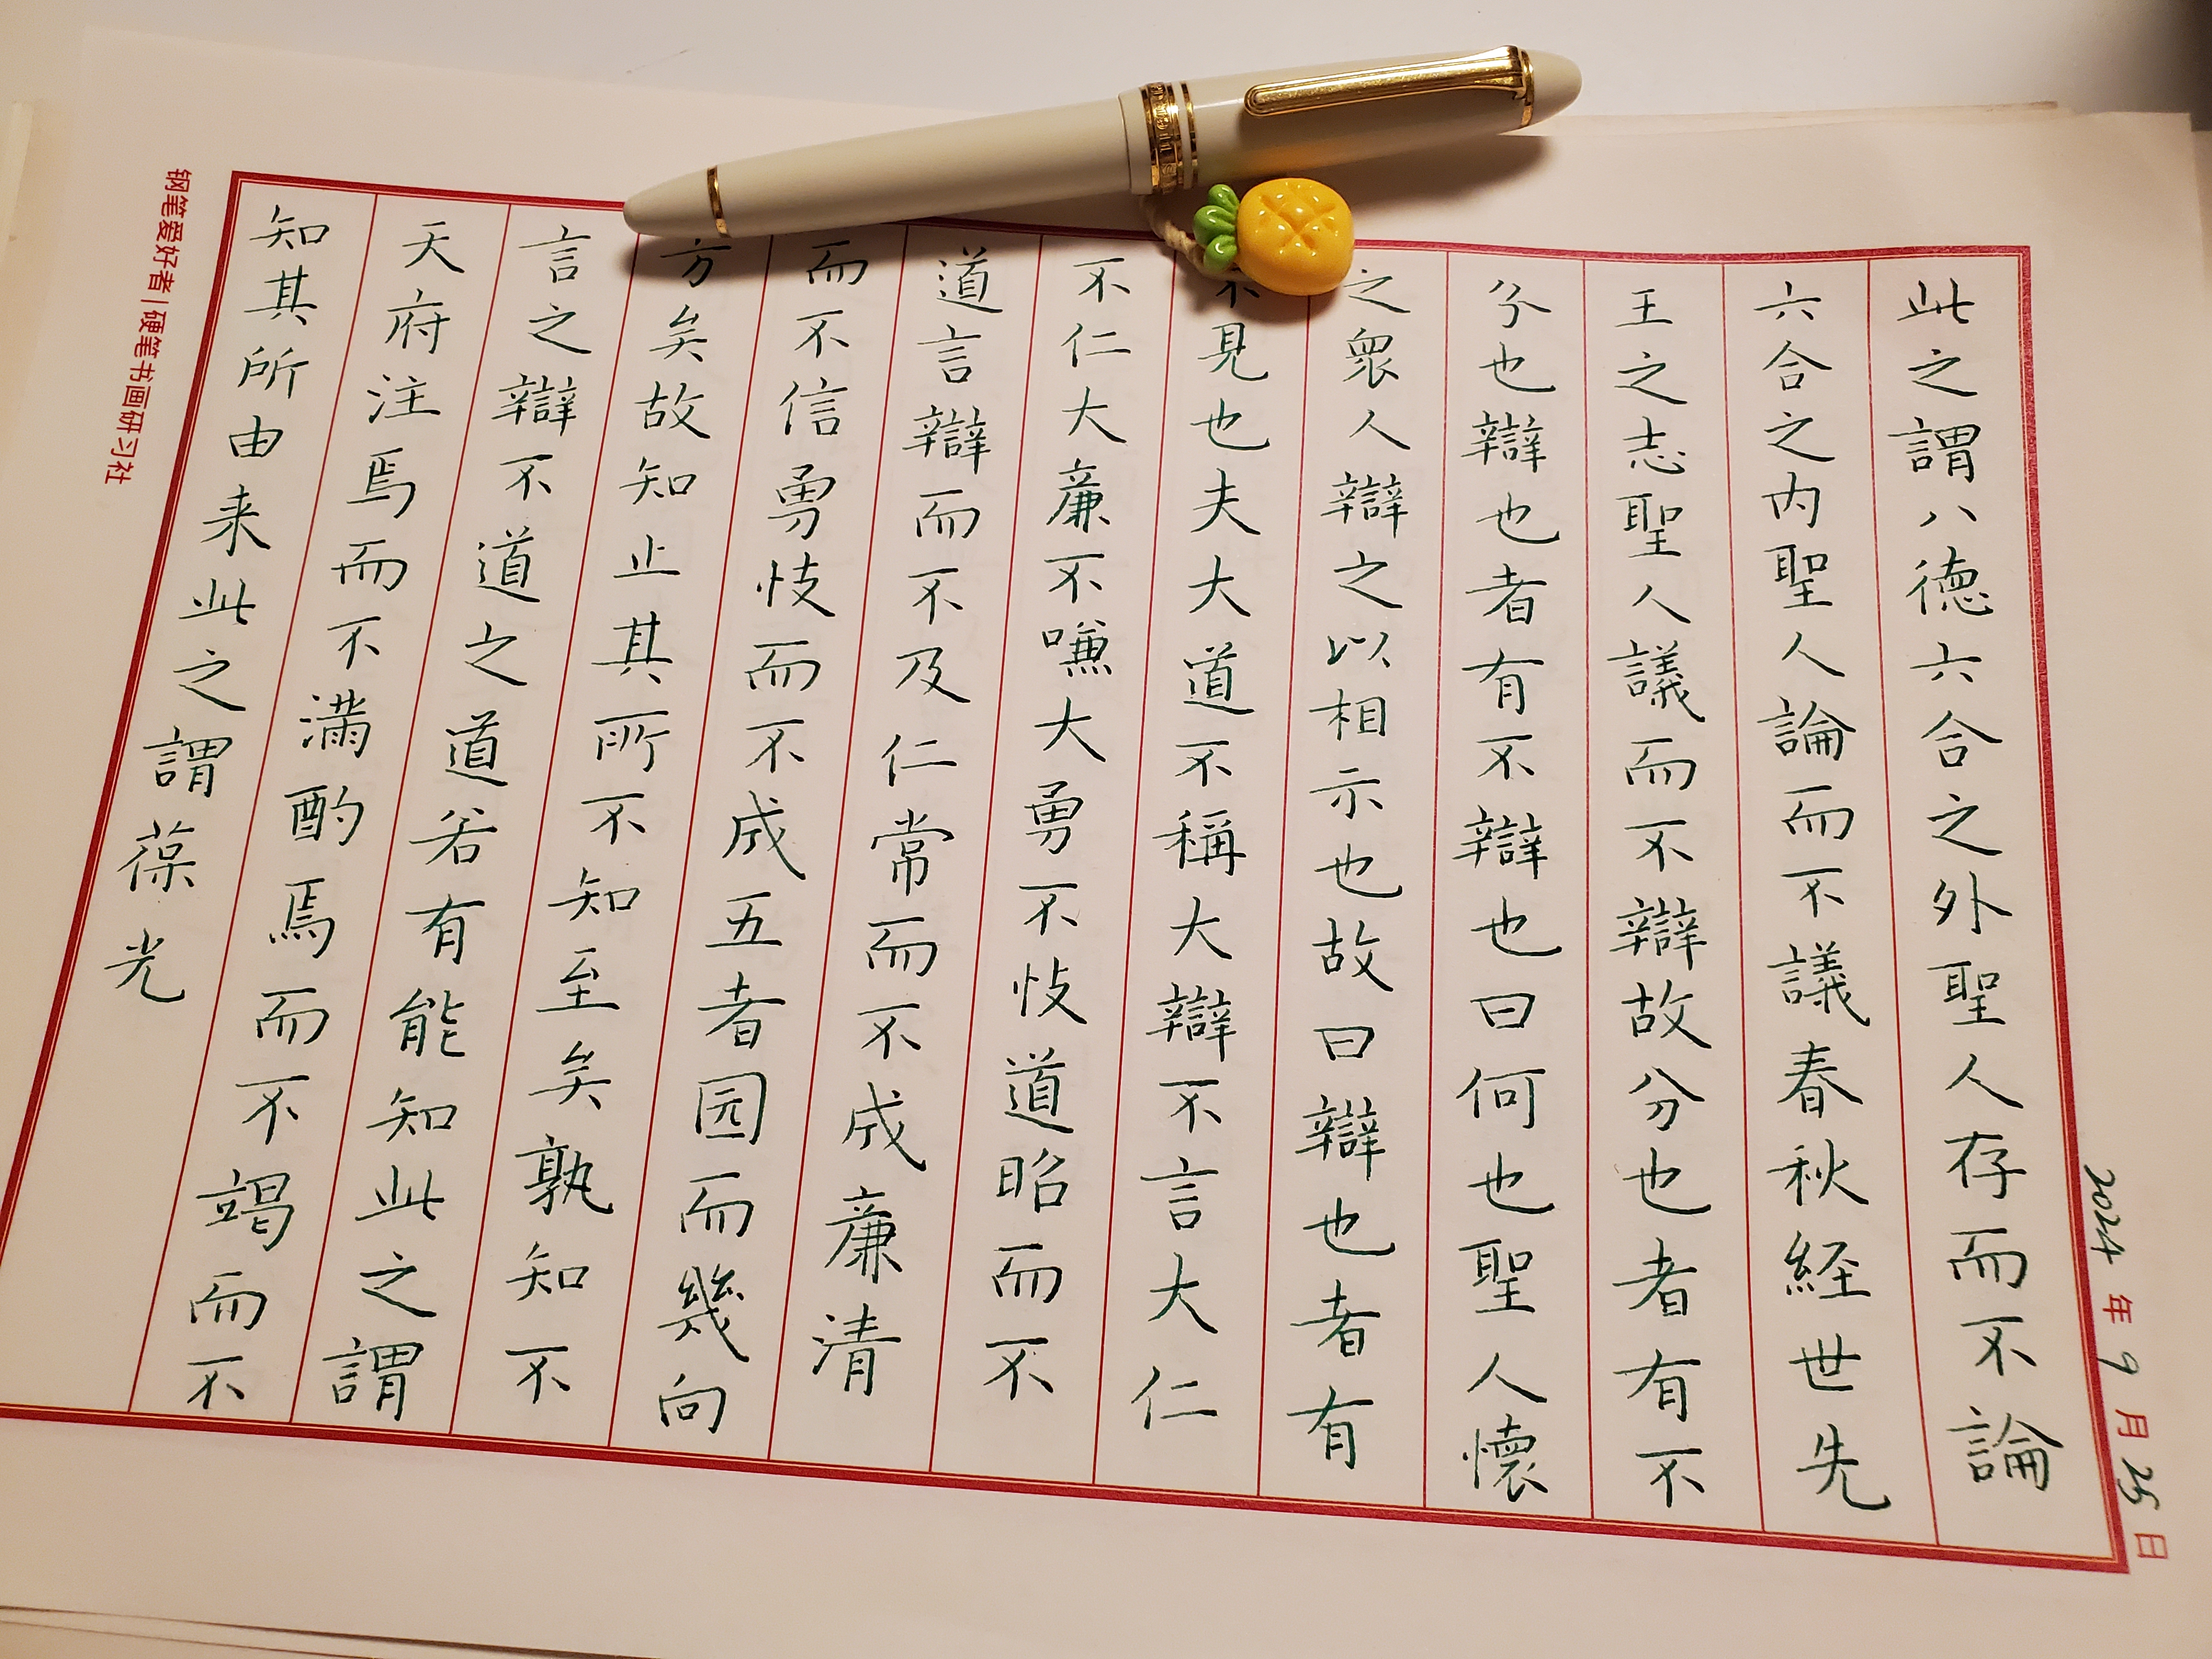 此之謂八德六合之外聖人存而不論
六合之内聖人論而不議春秋経世先
王之志聖人議而不辯故分也者有不
分也辯也者有不辯也曰何也聖人懷
之衆人辯之以相示也故曰辯也者有
不見也夫大道不稱大辯不言大仁
不仁大廉不嗛大勇不忮道昭而不
道言辯而不及仁常而不成廉清
而不信勇忮而不成五者园而幾向
方矣故知止其所不知至矣孰知不
言之辯不道之道若有能知此之謂
天府注焉而不滿酌焉而不竭而不
知其所由来此之謂葆光
2024年9月25日
钢笔爱好者|硬笔书画研习社